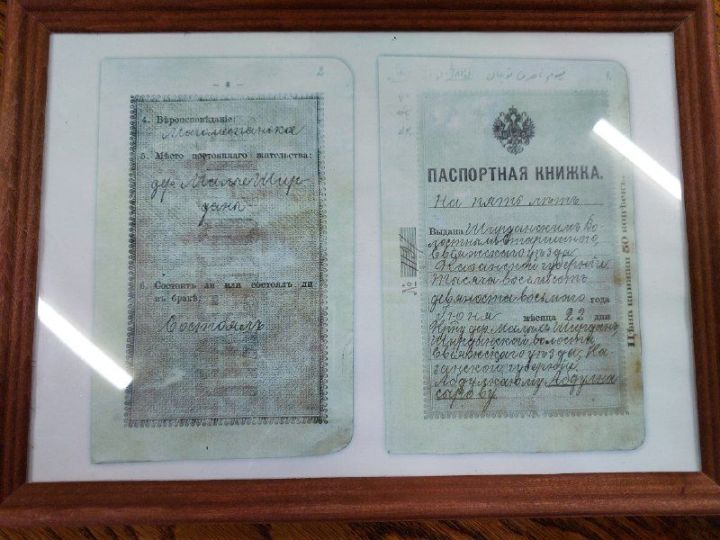 4. Вѣроисповѣданіе:
Магометанска
5. Мѣсто постояннаго жительства:
дер. Малые Шир-
даны
6. Состоитъ ли или состоялъ ли
въ бракѣ:
Состоялъ
2
ПАСПОРТНАЯ КНИЖКА.
На пять лѣтъ
Выдана Ширданскимъ Во-
лостнымъ Старшиною
Свіяжскаго уѣзда
Казанской губерніи
Тысяча восемьсотъ
девяноста восьмого года
Іюня мѣсяца 22 дня
дер. Малыхъ Ширданъ
Ширданской волости
Свіяжскаго уѣзда, Ка-
занской губерніи
Абдул
сарову
№
Цѣна книжки 50 копѣекъ.